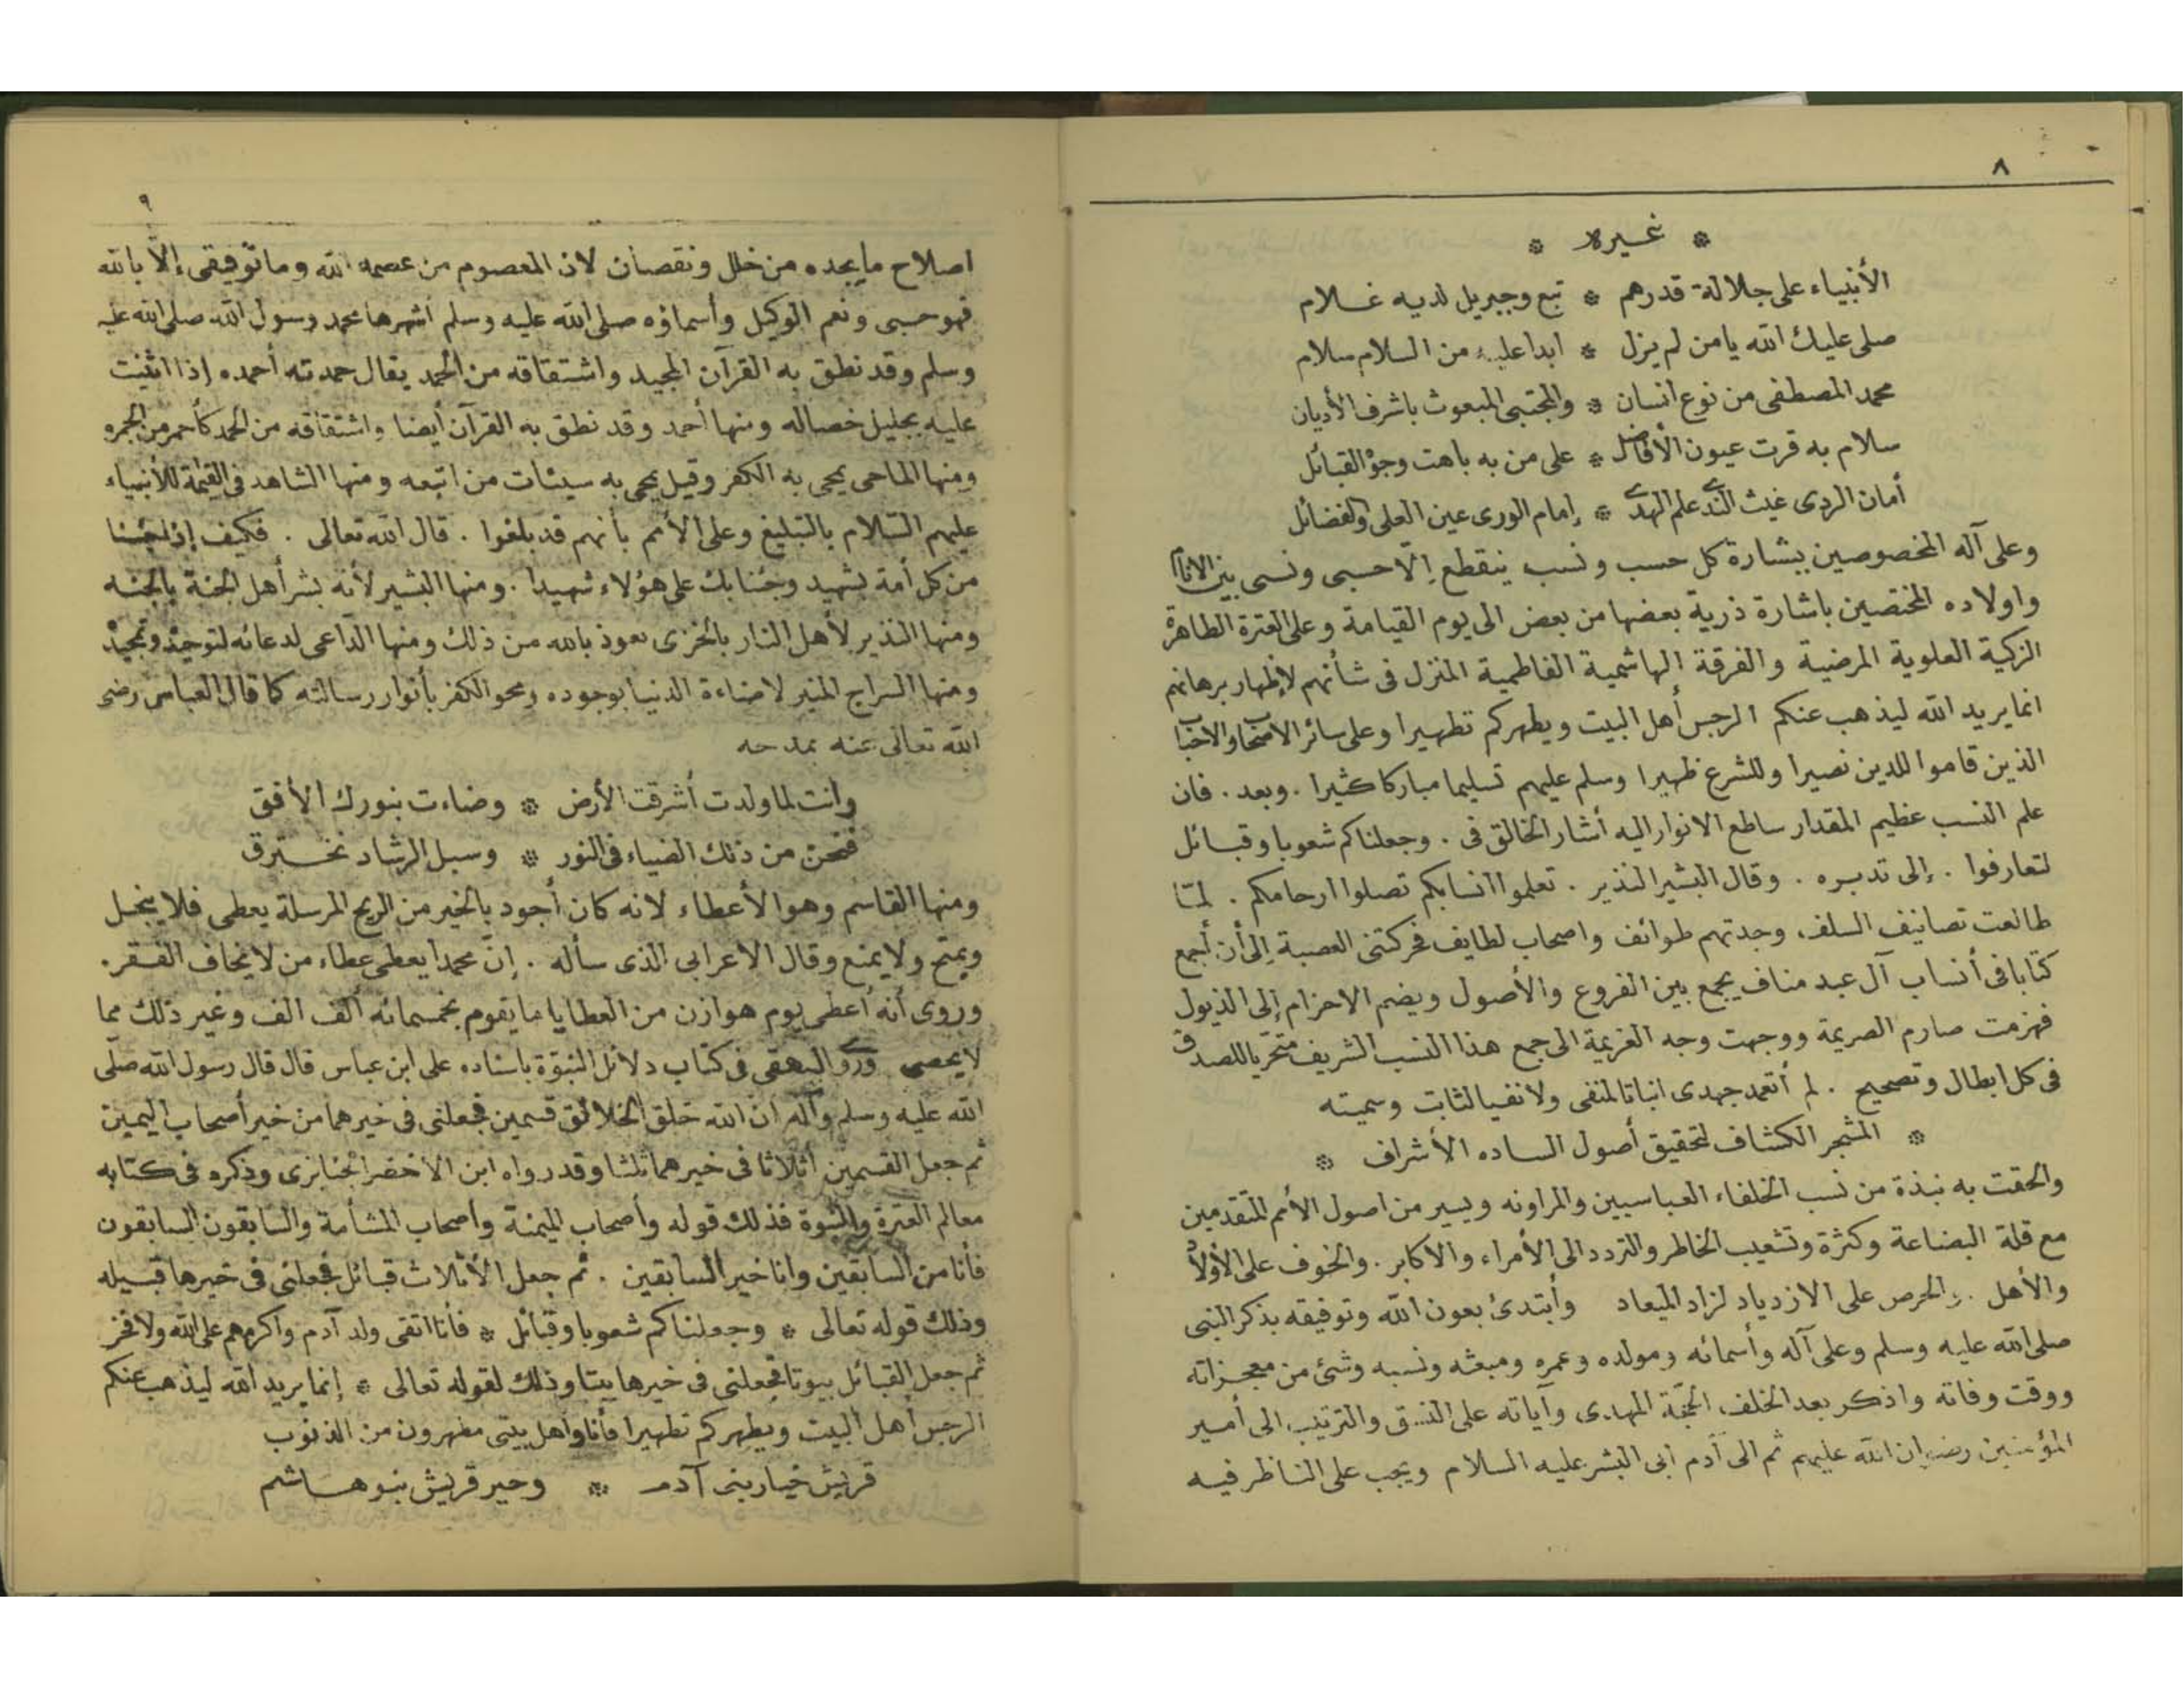 ٨
* غيره *
الأنبياء على جلالة قدرهم * تبع وجبريل لديه غلام
صلى عليك الله يا من لم يزل * ابدا عليه من السلام سلام
محمد المصطفى من نوع انسان * والمجتبى المبعوث باشرف الأديان
سلام به قرت عيون الأفاضل * على من به باهت وجوْ القبائل
أمان الردى غيث الندى علم الهدى * إمام الورى عين العلى والفضائل
وعلى آله المخصوصين ببشارة كل حسب ونسب ينقطع إلّا حسبى ونسبى بين الانام
واولاده المختصين باشارة ذرية بعضها من بعض الى يوم القيامة وعلى العترة الطاهرة
الزكية العلوية المرضية والفرقة الهاشمية الفاطمية المنزل فى شأنهم لإظهار برهانهم
انما يريد الله ليذهب عنكم الرجس أهل البيت ويطهركم تطهيرا وعلى سائر الاصحاب والاحباب
الذين قاموا للدين نصيرا وللشرع ظهيرا وسلم عليهم تسليما مباركا كثيرا . وبعد . فان
علم النسب عظيم المقدار ساطع الانوار اليه أشار الخالق فى . وجعلناكم شعوبا وقبائل
لتعارفوا . إلى تدبره . وقال البشير النذير . تعلموا انسابكم تصلوا ارحامكم . لمّا
طالعت تصانيف السلف، وجدتهم طوائف واصحاب لطايف فحركتنى العصبة إلى أن أجمع
كتابا فى أنساب آل عبد مناف يجمع بين الفروع والأصول ويضم الاحزام إلى الذيول
فهزمت صارم الصريمة ووجهت وجه العزيمة الى جمع هذا النسب الشريف متحّريا للصدق
فى كل ابطال وتصحيح . لم أتعمد جهدى اثباتا لمنفى ولا نفيا لثابت وسميته
* المشجر الكشاف لتحقيق أصول الساده الأشراف *
والحقت به نبذة من نسب الخلفاء العباسيين والمراونه ويسير من اصول الأمم المتقدمين
مع قلة البضاعة وكثرة وتشعيب الخاطر والتردد الى الأمراء والاكابر . والخوف على الأولاد
والأهل . والحرص على الازدياد لزاد الميعاد وأبتدئ بعون الله وتوفيقه بذكر النبى
صلى الله عليه وسلم وعلى آله وأسمائه ومولده وعمره ومبعثه ونسبه وشئ من معجزاته
ووقت وفاته واذكر بعد الخلف الحجّة المهدى وآياته على النسق والترتيب الى أمير
المؤمنين رضوان الله عليهم ثم الى آدم ابى البشر عليه السلام ويجب على الناظر فيه
٩
اصلاح ما يجده من خلل ونقصان لان المعصوم من عصمه الله وما توفيقى إلّا بالله
فهو حسبى ونعم الوكيل وأسماؤه صلى الله عليه وسلم اشهرها محمد رسول الله صلى الله عليه
وسلم وقد نطق به القرآن المجيد واشتقاقه من الحمد يقال حمدته أحمده إذا اثنيت
عليه بجليل خصاله ومنها أحمد وقد نطق به القرآن أيضا واشتقاقه من الحمد كأحمر من الحمره
ومنها الماحى يمحى به الكفر وقيل يمحى به سيئات من اتبعه ومنها الشاهد فى القيمة للأنبياء
عليهم السّلام بالتبليغ وعلى الأمم بأنهم قد بلغوا . قال الله تعالى . فكيف إذا جئنا
من كل أمة بشهيد وجئنا بك على هؤلاء شهيدا . ومنها البشير لأنه بشر أهل الجنة بالجنه
ومنها النذير لأهل النار بالخزى نعوذ بالله من ذلك ومنها الدّاعى لدعائه لتوحيد وتمجيد
ومنها السراج المنير لاضاءة الدنيا بوجوده ومحو الكفر بأنوار رسالته كما قال العباس رضى
الله تعالى عنه يمدحه
وأنت لما ولدت أشرقت الأرض * وضاءت بنورك الأفق
فنحن من ذلك الضياء فى النور * وسبل الرشاد نخترق
ومنها القاسم وهو الأعطاء لانه كان أجود بالخير من الريح المرسلة يعطى فلا يبخل
ويمنح ولا يمنع وقال الاعرابى الذى سأله . إنّ محمدا يعطى عطاء من لا يخاف الفقر .
وروى أنه أعطى يوم هوازن من العطايا ما يقوم بخمسمائه ألف الف وغير ذلك مما
لا يحصى وروى البهقى فى كتاب دلائل النبوّة باسناده على ابن عباس قال قال رسول الله صلّى
الله عليه وسلم وآله ان الله خلق الخلائق قسمين فجعلنى فى خيرهما من خير أصحاب اليمين
ثم جعل القسمين أثلاثا فى خيرهما ثلثا وقد رواه ابن الاخضر الجنابزى وذكره فى كتابه
معالم العترة والنبوة فذلك قوله وأصحاب الميمنة وأصحاب المشأمة والسّابقون السابقون
فأنا من السابقين وانا خير السابقين . ثم جعل الأثلاث قبائل فجعلنى فى خيرها قبيله
وذلك قوله تعالى * وجعلناكم شعوبا وقبائل * فأنا اتقى ولد آدم وأكرمهم على الله ولا فخر
ثم جعل القبائل بيوتا فجعلنى فى خيرها بيتا وذلك لقوله تعالى * إنما يريد الله ليذهب عنكم
الرجس أهل البيت ويطهركم تطهيرا فأنا واهل بيتى مطهرون من الذنوب
قريش خيار بنى آدم * وخير قريش بنو هاشم